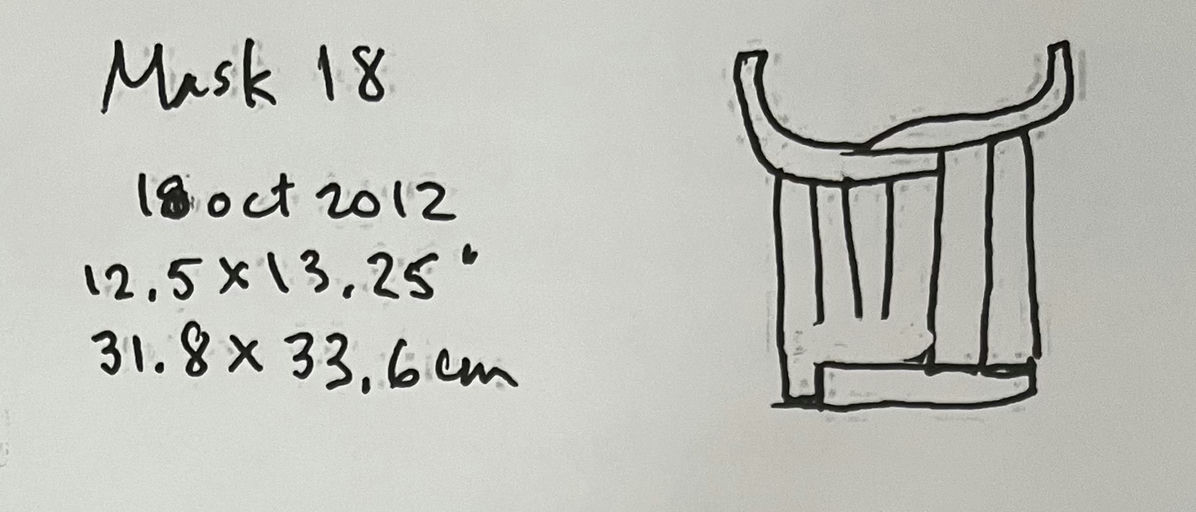 Mask 18
18 oct 2012
12.5 x 13.25"
31.8 x 33.6 cm